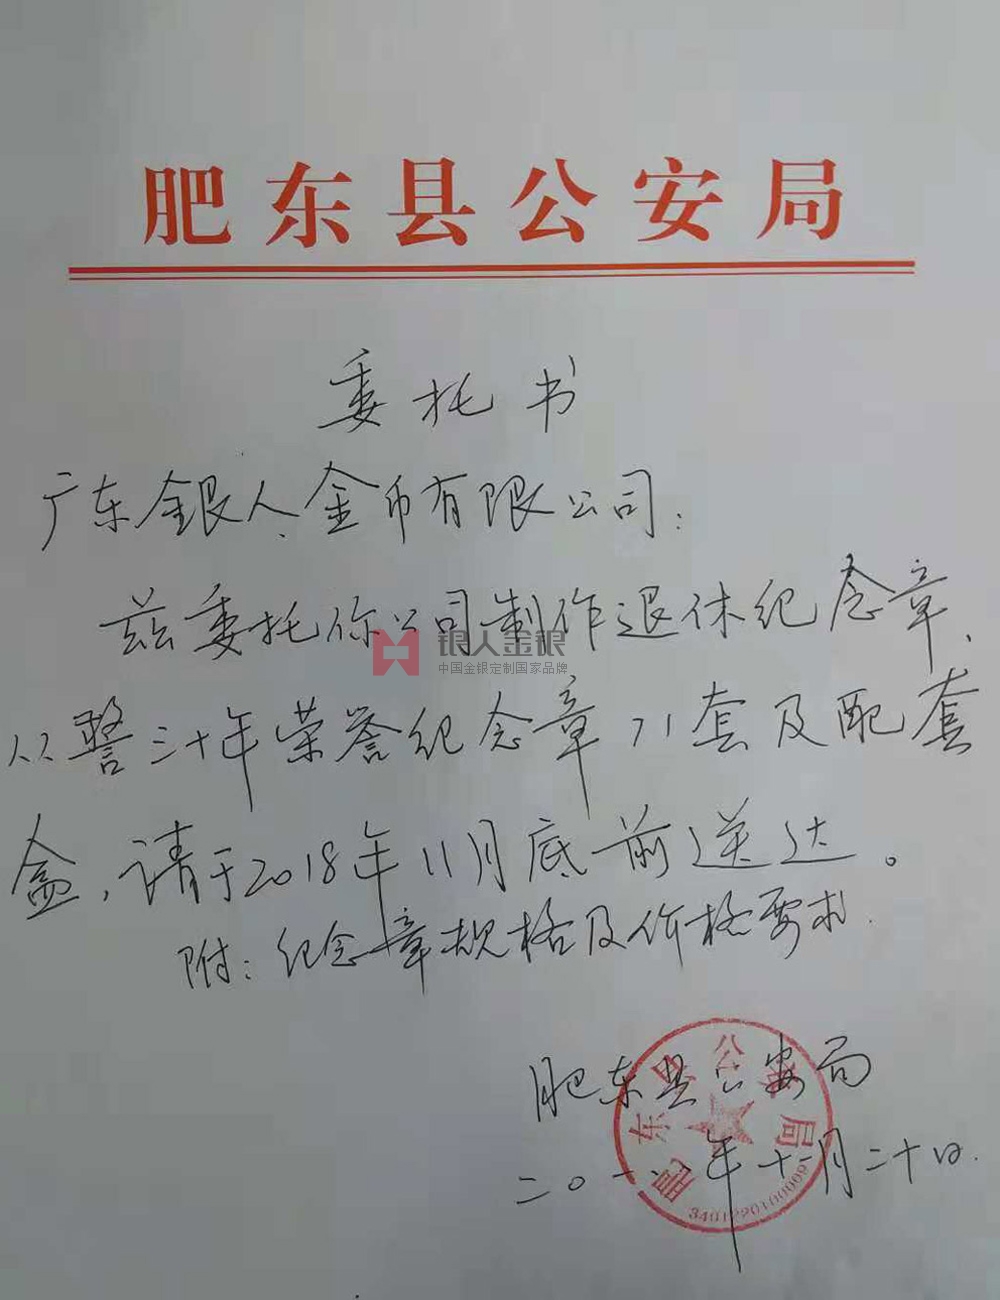 肥东县公安局
委托书
广东银人金币有限公司：
兹委托你公司制作退休纪念章、
银人金银
中国金银定制国家品牌
从警三十年荣誉纪念章71套及配套
盒，请于2018年11月底前送达。
附：纪念章规格及价格要求.
肥东县公安局
二〇一八年十一月二十日.
肥东县公安局